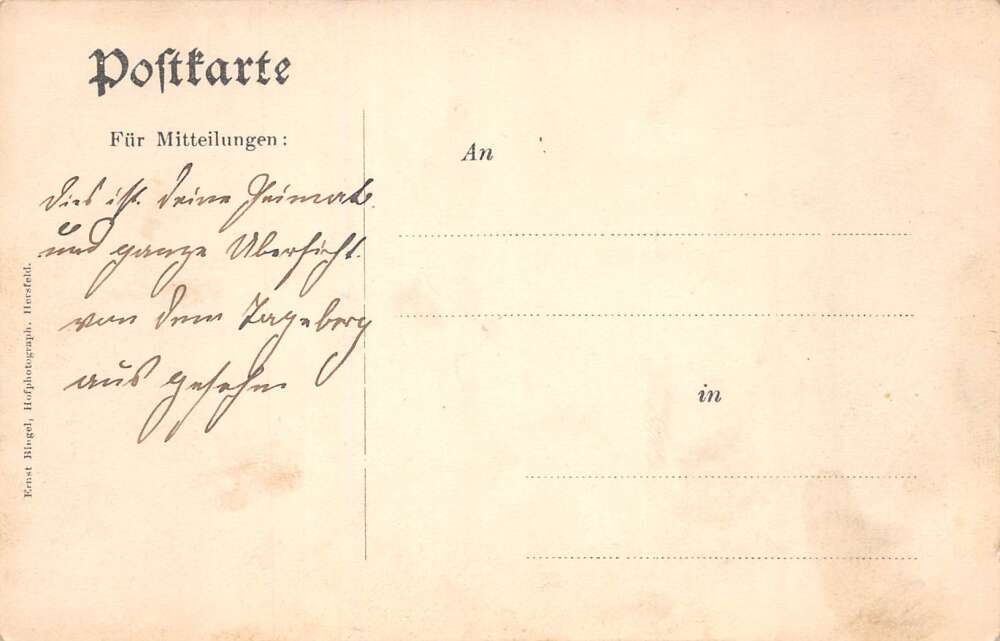 Postkarte
Für Mitteilungen:
An
in
Dies ist deine Heimat
und ganze Übersicht.
von dem Tageberg
aus gesehn
Ernst Bingel, Hofphotograph, Hersfeld.